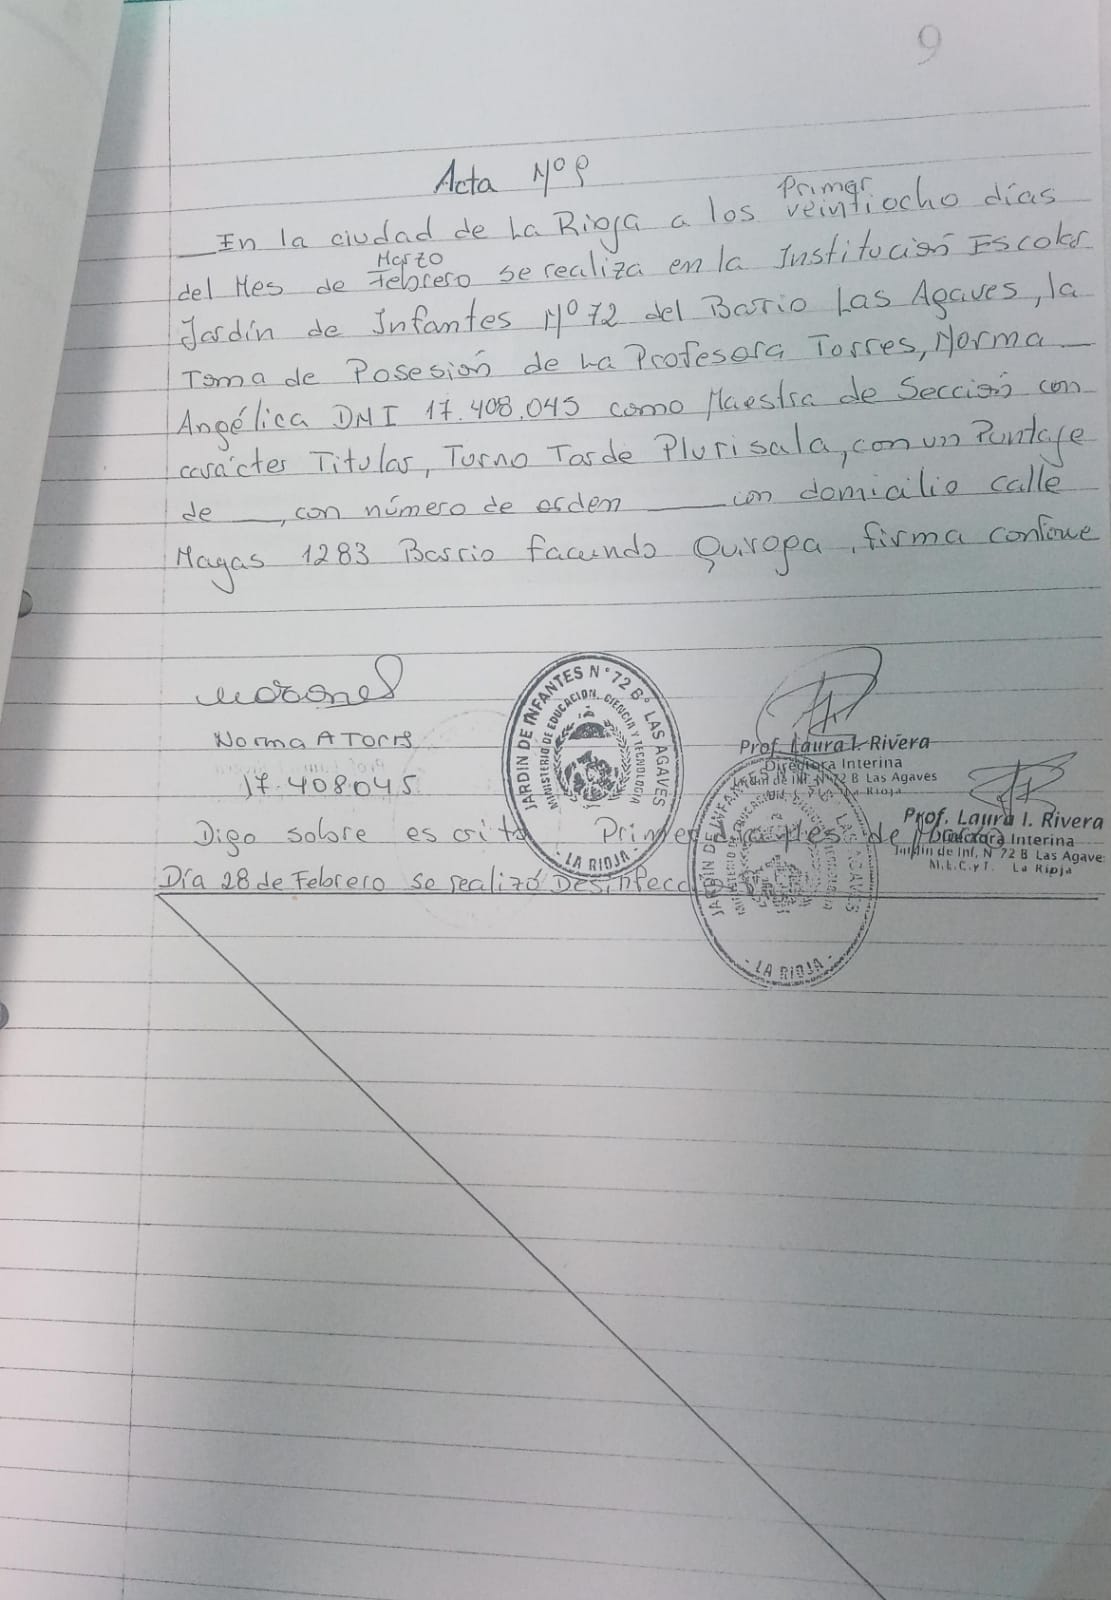 9
Acta Nº 9
Primer
En la ciudad de La Rioja a los veintiocho días
Marzo
del Mes de Febrero se realiza en la Institución Escolar
Jardín de Infantes Nº 72 del Barrio Las Agaves, la
Toma de Posesión de La Profesora Torres, Norma
Angélica DNI 17.408.045 como Maestra de Sección con
carácter Titular, Turno Tarde Plurisala, con un Puntaje
de ___, con número de orden ___ con domicilio calle
1283 Barrio Facundo Quiroga, firma conforme
JARDIN DE INFANTES N° 72 B° LAS AGAVES
MINISTERIO DE EDUCACION, CIENCIA Y TECNOLOGIA
- LA RIOJA -
Norma A Torres
17.408045
Prof. Laura I. Rivera
Directora Interina
Jardin de Inf. N 72 B Las Agaves
La Rioja
Prof. Laura I. Rivera
Directora Interina
Jardin de Inf. N 72 B Las Agaves
M.E.C. y T. La Rioja
Digo sobre escrito Primer de
Día 28 de Febrero se realizó Desinfección
JARDIN DE INFANTES LAS AGAVES
- LA RIOJA -